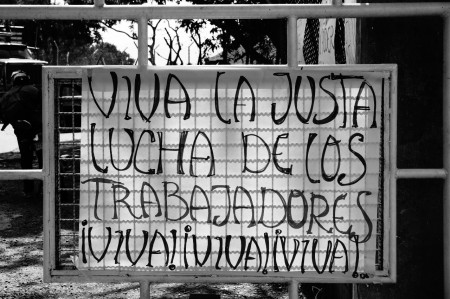 VIVA LA JUSTA
LUCHA DE LOS
TRABAJADORES
¡VIVA!¡VIVA!¡VIVA!